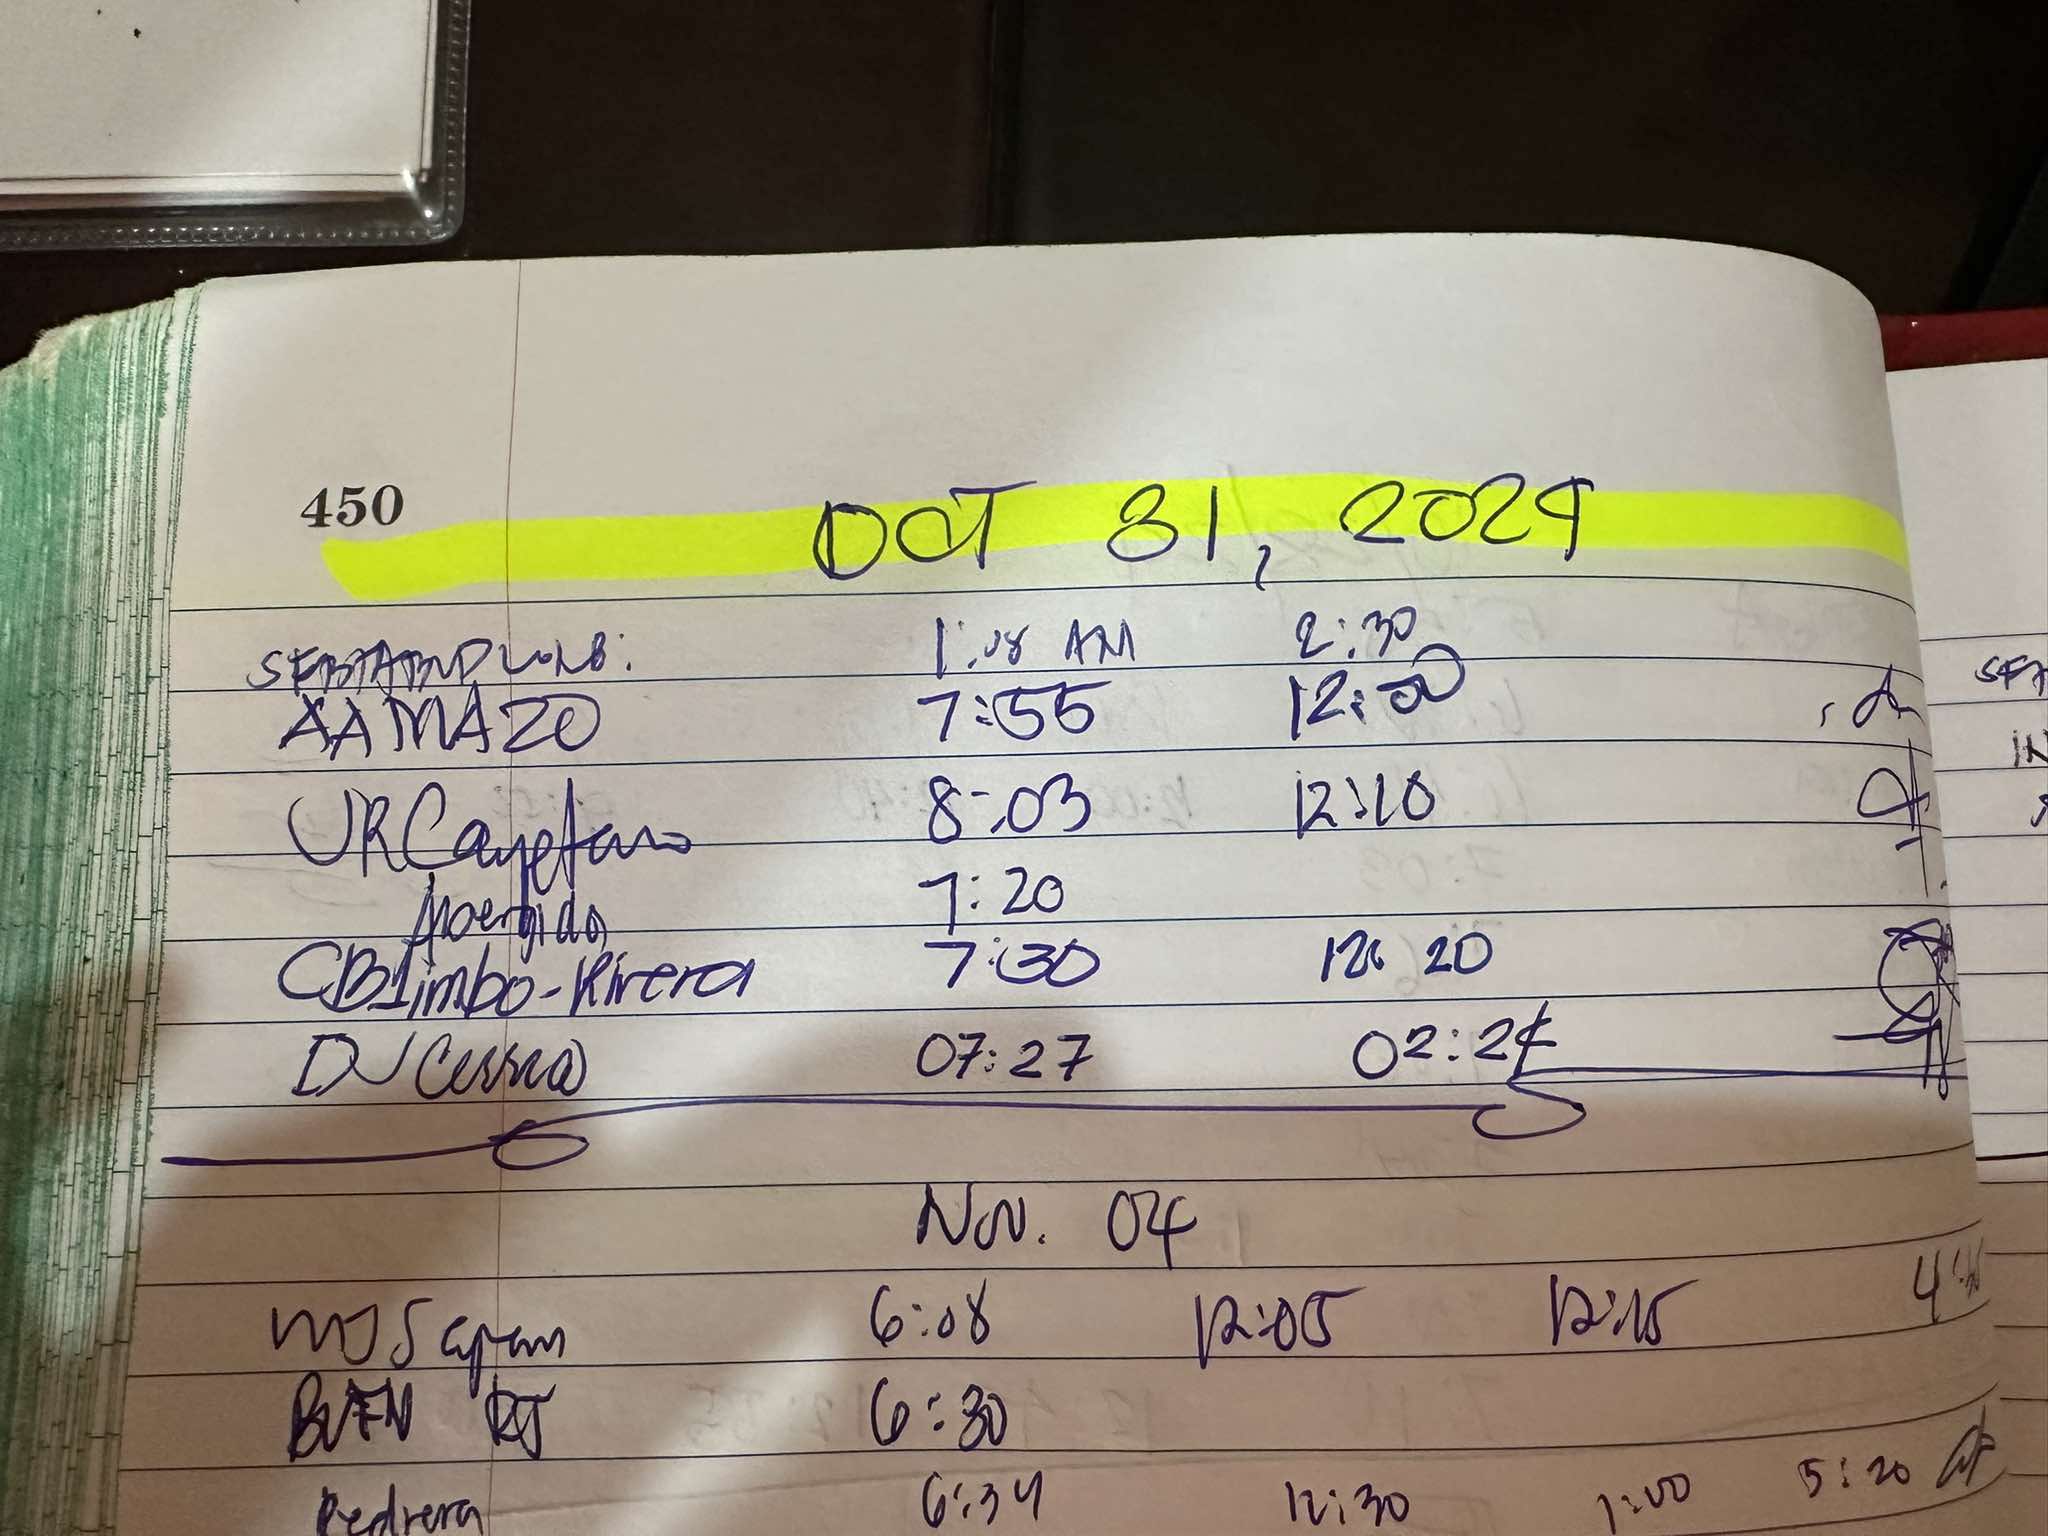 450
OCT 31, 2024
1:08 AM 2:30
AAMAZO 7:55 12:00
URCayetano 8:03 12:10
7:20
CBLimbo-Rivera 7:30 12:20
DJ 07:27 02:24
Nov. 04
MJSapan 6:08 12:05 12:15
BUAN RJ 6:30
Pedrera 6:34 12:30 1:00 5:20